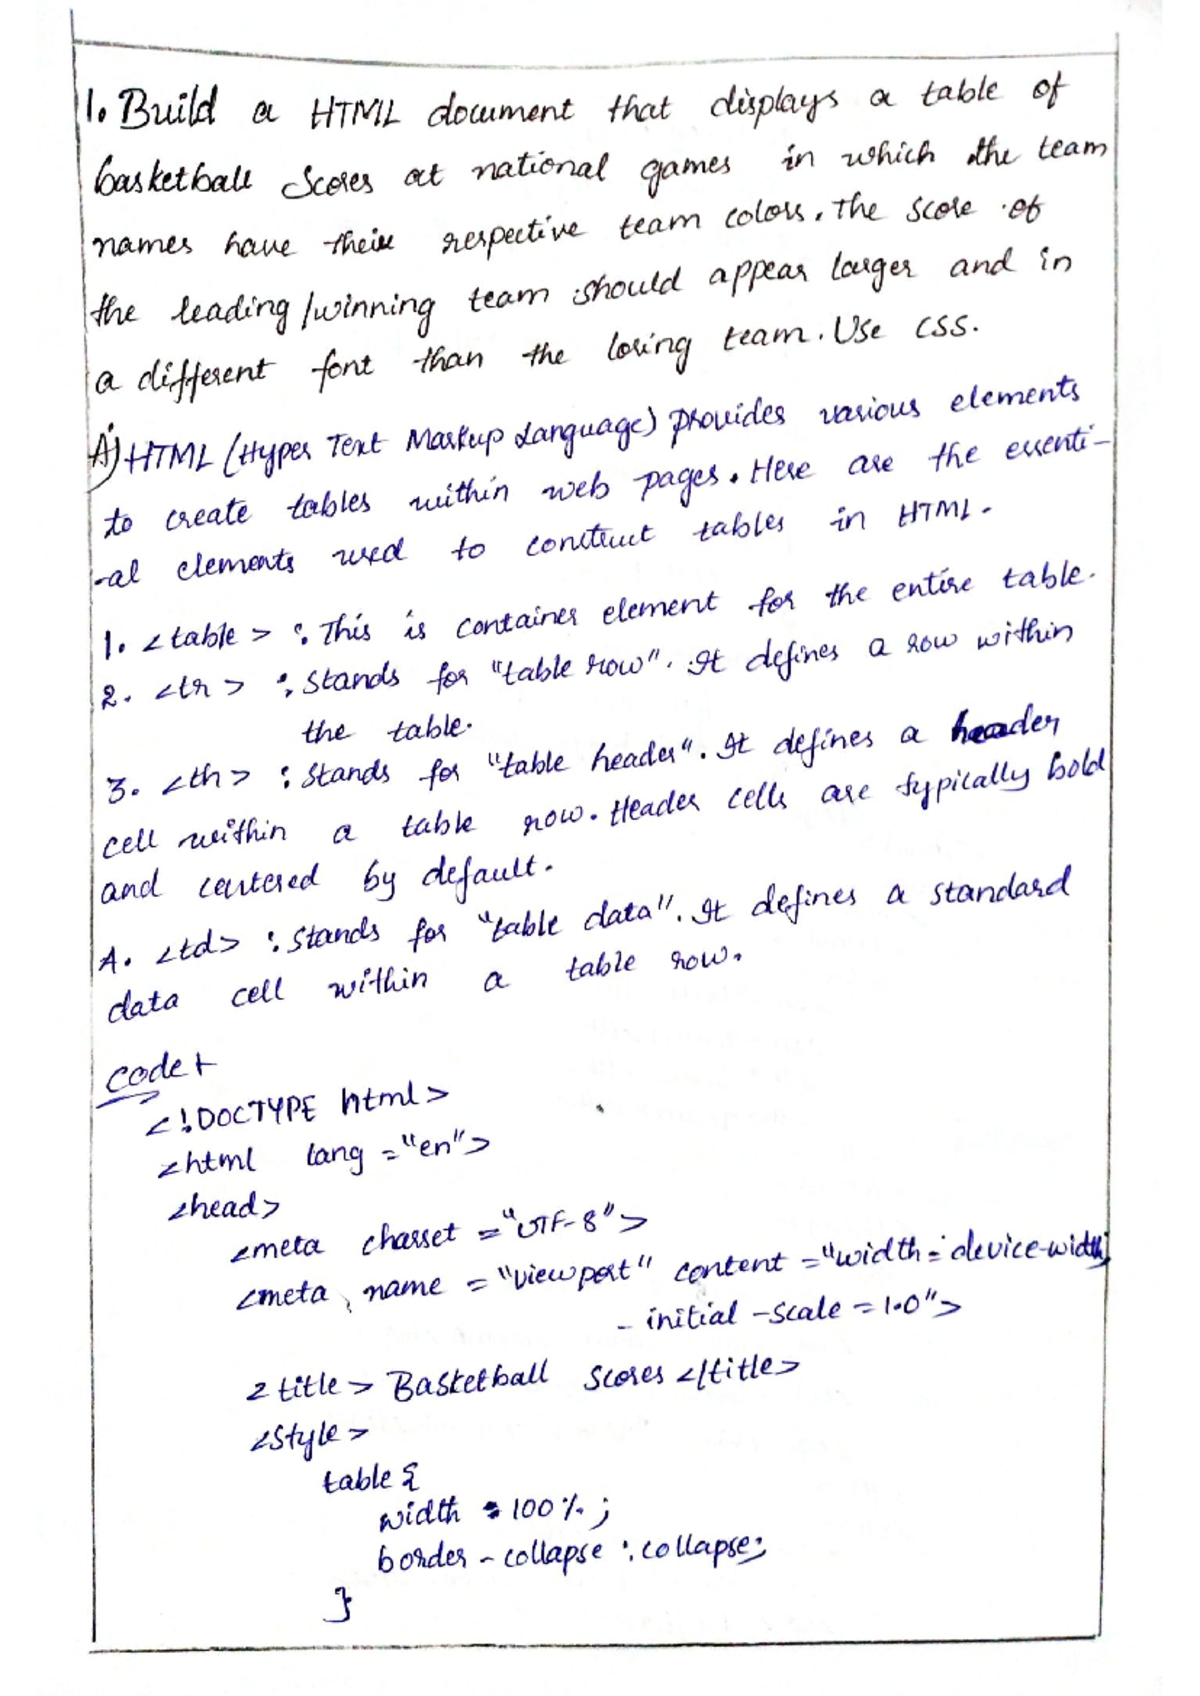 1. Build a HTML document that displays a table of
basketball Scores at national games in which the team
names have their respective team colors. The score of
the leading/winning team should appear larger and in
a different font than the losing team. Use CSS.
A) HTML (Hyper Text Markup Language) provides various elements
to create tables within web pages. Here are the essenti-
-al elements used to construct tables in HTML.
1. <table> : This is container element for the entire table.
2. <tr> : Stands for "table row". It defines a row within
the table.
3. <th> : Stands for "table header". It defines a header
cell within a table row. Header cells are typically bold
and centered by default.
4. <td> : Stands for "table data". It defines a standard
data cell within a table row.
code:-
<!DOCTYPE html>
<html lang="en">
<head>
<meta charset="UTF-8">
<meta name="viewport" content="width=device-width,
- initial-scale=1.0">
<title> Basketball Scores </title>
<style>
table {
width : 100%;
border-collapse : collapse;
}